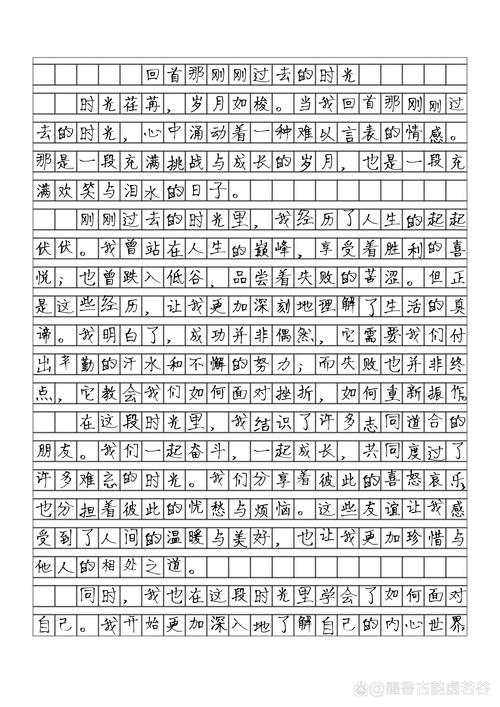 回首那刚刚过去的时光
时光荏苒，岁月如梭。当我回首那刚刚过
去的时光，心中涌动着一种难以言表的情感。
那是一段充满挑战与成长的岁月，也是一段充
满欢笑与泪水的日子。
刚刚过去的时光里，我经历了人生的起起
伏伏。我曾站在人生的巅峰，享受着胜利的喜
悦；也曾跌入低谷，品尝着失败的苦涩。但正
是这些经历，让我更加深刻地理解了生活的真
谛。我明白了，成功并非偶然，它需要我们付
出辛勤的汗水和不懈的努力；而失败也并非终
点，它教会我们如何面对挫折，如何重新振作
在这段时光里，我结识了许多志同道合的
朋友。我们一起奋斗，一起成长，共同度过了
许多难忘的时光。我们分享着彼此的喜怒哀乐，
也分担着彼此的忧愁与烦恼。这些友谊让我感
受到了人间的温暖与美好，也让我更加珍惜与
他人的相处之道。
同时，我也在这段时光里学会了如何面对
自己。我开始更加深入地了解自己的内心世界